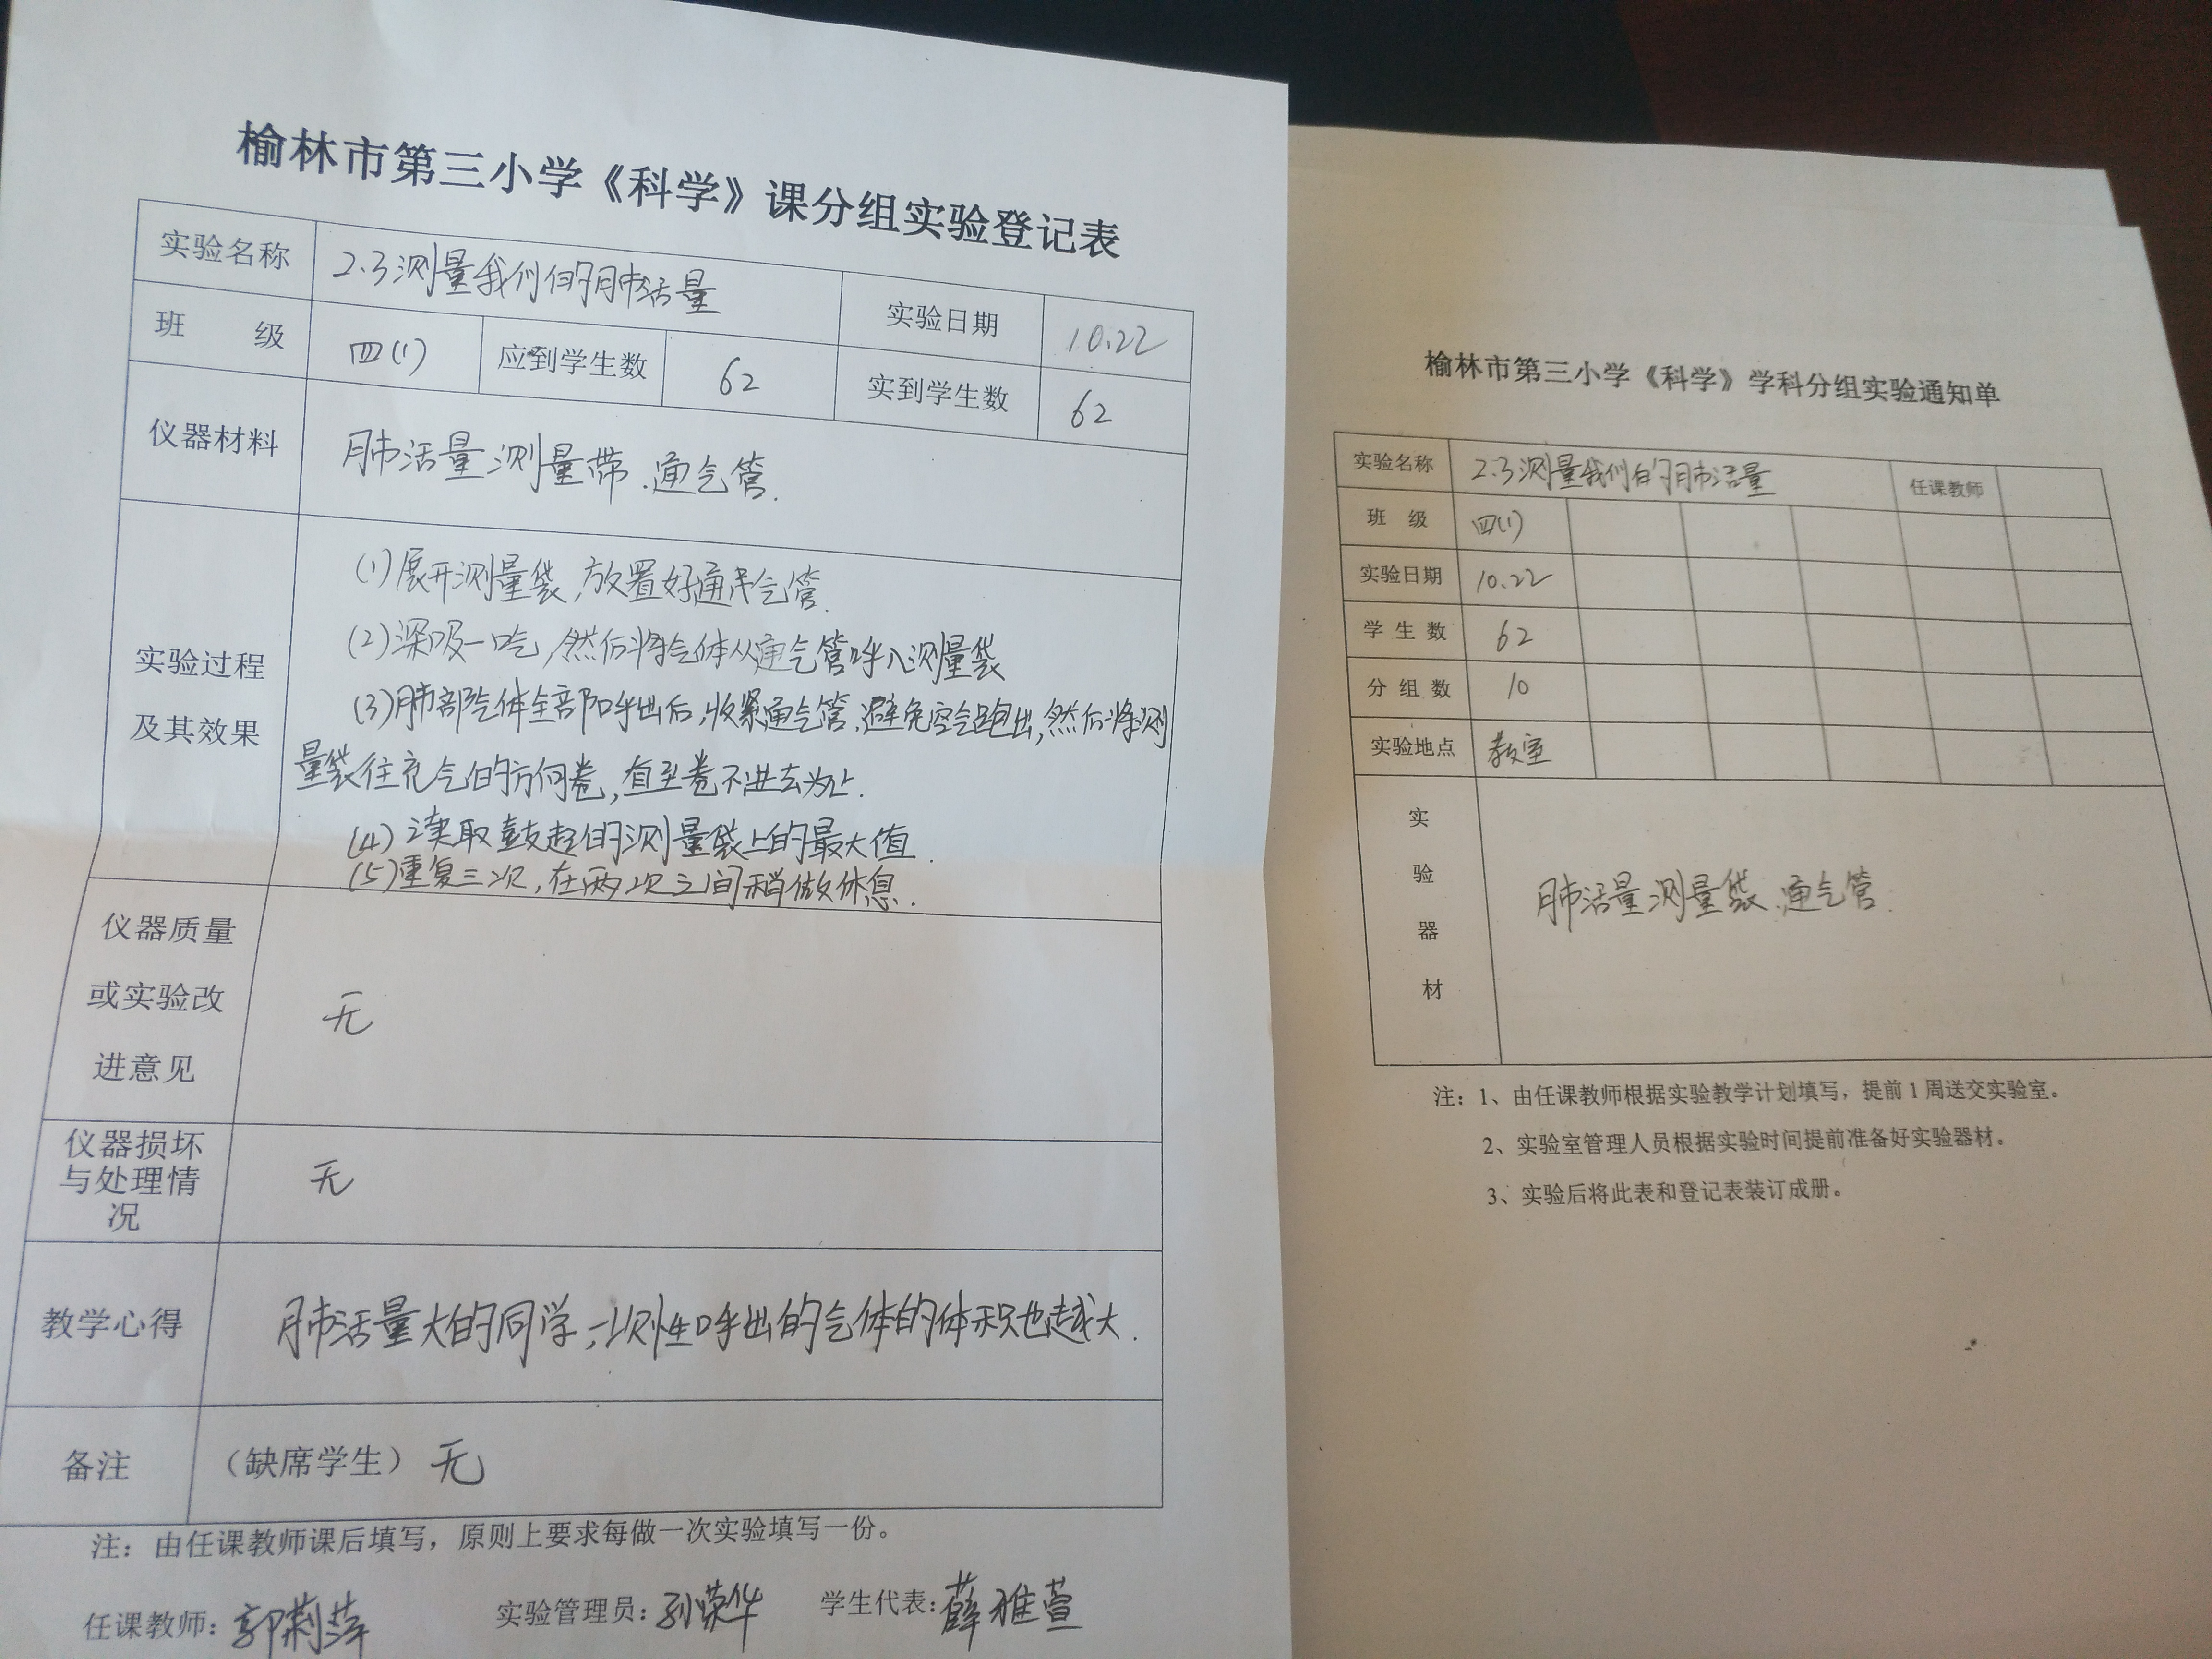 榆林市第三小学《科学》课分组实验登记表
实验名称 2.3测量我们的肺活量 实验日期 10.22
班 级 四(1) 应到学生数 62 实到学生数 62
仪器材料 肺活量测量带.通气管.
实验过程
及其效果
(1)展开测量袋,放置好通气管.
(2)深吸一吃,然后将气体从通气管呼入测量袋
(3)肺部气体全部呼出后,收紧通气管,避免空气跑出,然后将测
量袋往充气的方向卷,直至卷不进去为止.
(4)读取鼓起的测量袋上的最大值.
(5)重复三次,在两次之间稍做休息.
仪器质量
或实验改
进意见
无
仪器损坏
与处理情
况
无
教学心得 肺活量大的同学,一次性呼出的气体的体积也越大.
备注 （缺席学生）无
注：由任课教师课后填写，原则上要求每做一次实验填写一份。
任课教师：郭莉萍 实验管理员：孙荣华 学生代表：薛雅萱
榆林市第三小学《科学》学科分组实验通知单
实验名称 2.3测量我们的肺活量 任课教师
班 级 四(1)
实验日期 10.22
学 生 数 62
分 组 数 10
实验地点 教室
实
验
器
材
肺活量测量袋、通气管.
注：1、由任课教师根据实验教学计划填写，提前1周送交实验室。
2、实验室管理人员根据实验时间提前准备好实验器材。
3、实验后将此表和登记表装订成册。